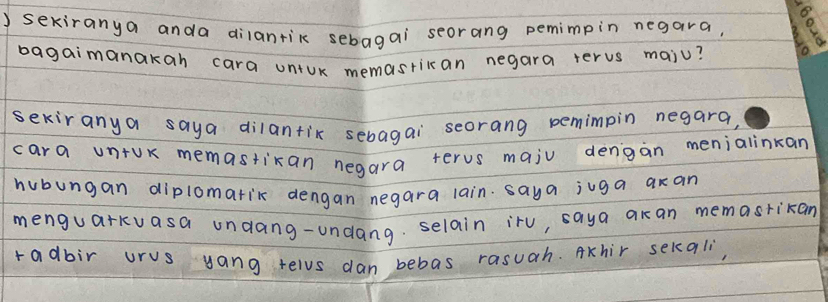 ) sekiranya anda dilantik sebagai seorang pemimpin negara,
bagaimanakah cara untuk memastikan negara terus maju?
sekiranya saya dilantik sebagai seorang pemimpin negara,
cara untuk memastikan negara terus maju dengan menjalinkan
hubungan diplomatik dengan negara lain. saya juga akan
menguatkuasa undang-undang. selain itu, saya akan memastikan
tadbir urus yang telus dan bebas rasuah. Akhir sekali,